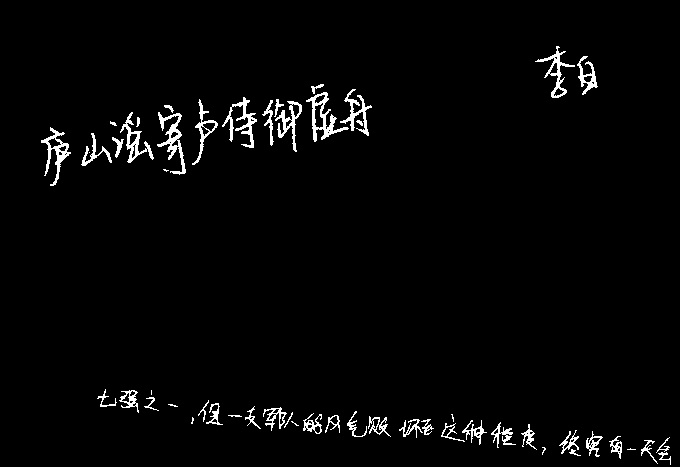 李白
庐山谣寄卢侍御虚舟
七强之一，但一支军队的风气败坏至这种程度，终究有一天会